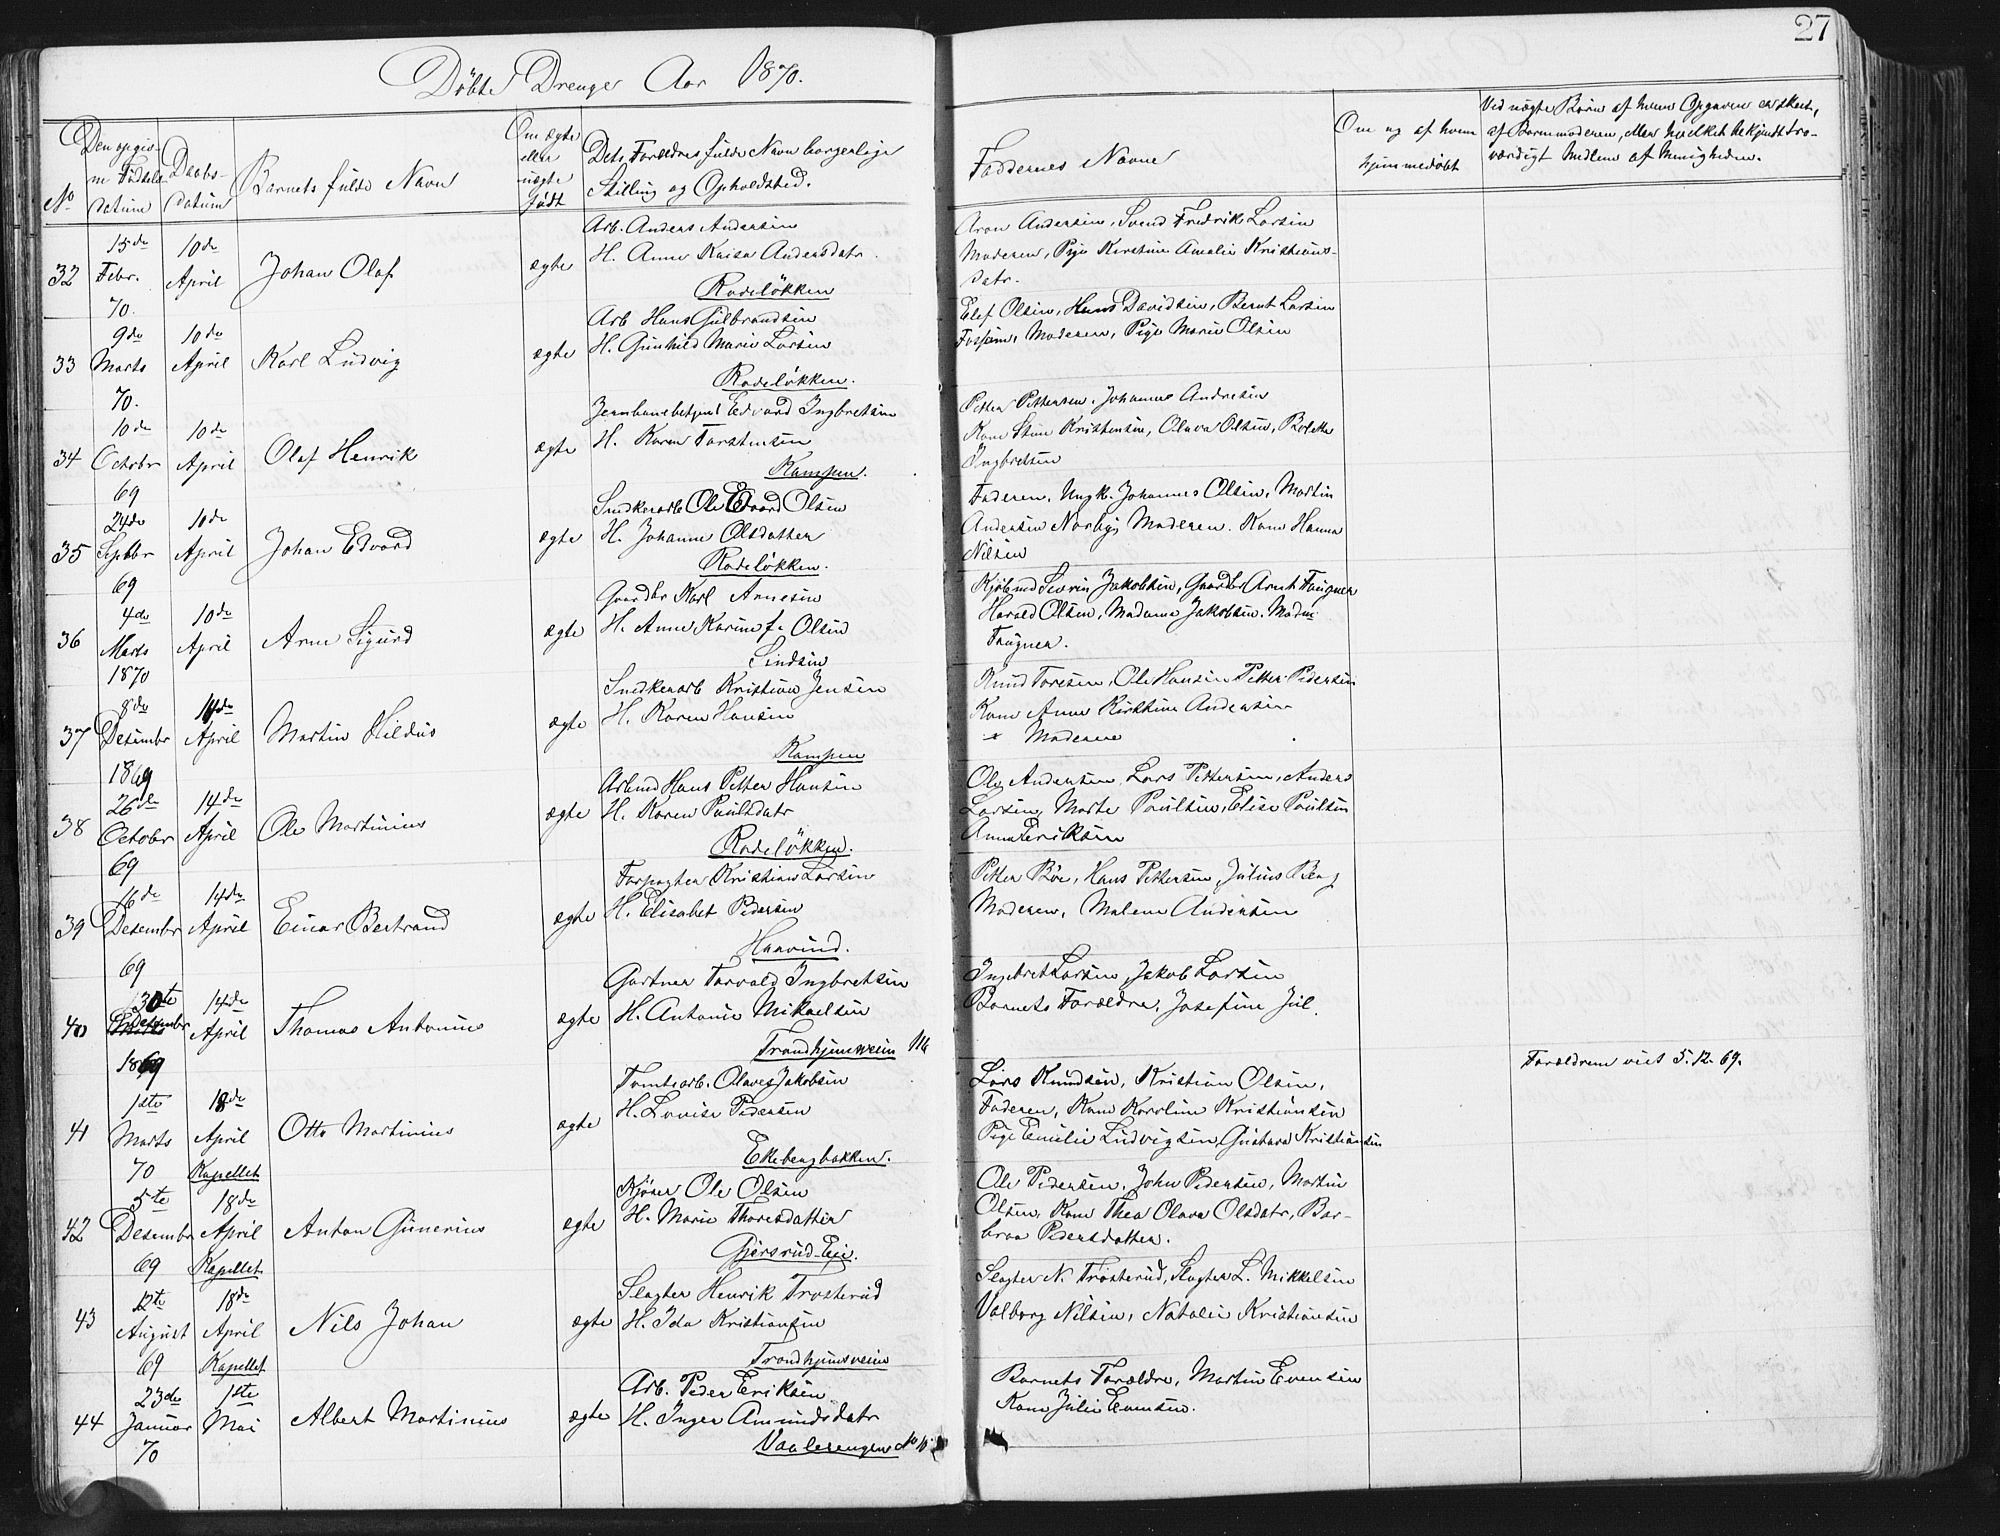 27
Döbte Drenge Aar 1870.
No
Den opgivne Fødselsdatum
Daabsdatum
Barnets fulde Navn
Om ægte eller uægte født
Dets Forældres fulde Navn borgerlige Stilling og Opholdsted.
Faddernes Navne
Om og af hvem hjemmedøbt
Ved uægte Børn af hvem Opgaven er skeet,
af Barnmoderen, eller hvilket bekjendt tro-
værdigt Medlem af Menigheden.
32 15de Febr. 70. 10de April Johan Olaf ægte
Arb. Anders Andersen
H. Anne Kaisa Andersdatr.
Rodeløkken
Aron Andersen, Svend Fredrik Larsen
Moderen, Pige Kirstine Amalie Kristians-
datr.
33 9de Marts 70. 10de April Karl Ludvig ægte
Arb Hans Gulbrandsen
H. Gunhild Marie Larsen
Rodeløkken.
Elef Olsen, Hans Davidsen, Bernt Larsen
Fossum, Moderen, Pige Marie Olsen
34 10de Octobr 69 10de April Olaf Henrik ægte
Jernbanebetjent Edvard Ingbretsen
H. Karen Torstensen
Kampen.
Petter Pettersen, Johanne Andresen
Kone Stine Kristensen, Olava Olsen, Bolette
Ingbretsen
35 24de Septbr 69 10de April Johan Edvard ægte
Snedkerarb Ole Edvard Olsen
H. Johanne Olsdatter
Rodeløkken.
Faderen, Ungk. Johannes Olsen, Martin
Andersen Norbys Moderen. Kone Hanna
Nilsen
36 4de Marts 1870 10de April Arne Sigurd ægte
Gaardbr Karl Arnesen
H. Anne Karine f. Olsen
Lindsen
Kjøbmd Severin Jakobsen, Gaardbr Arnt Faugner
Harald Olsen, Madame Jakobsen. Madm:
Faugner.
37 8de Desembr 1869 14de April Martin Hildus ægte
Snedkerarb Kristian Jensen
H. Karen Hansen
Kampen
Knud Toresen, Ole Hansen Petter Pedersen
Kone Anne Kirstine Andersen
Moderen
38 26de Octobr 69 14de April Ole Martinius ægte
Arbmd Hans Petter Hansen
H. Karen Paulsdatr
Rodeløkken.
Ole Andersen Lars Pettersen, Anders
Larsen, Marte Paulsen, Elise Paulsen
Anna Eriksen
39 16de Desembr 69 14de April Einar Bertrand ægte
Forpagter Kristian Larsen
H. Elisabet Pedersen
Haavind.
Petter Bøe, Hans Pettersen, Julius Berg
Moderen, Malene Andersen
40 30te Desembr 1869 14de April Thomas Antonius ægte
Gartner Torvald Ingbretsen
H. Antonie Mikaelsen
Trondhjemsveien 116
Ingebret Larsen Jakob Larsen
Barnets Forældre, Josefine Jul.
41 1ste Marts 70 18de April Kapellet Otto Martinius ægte
Tomtearb. Olaves Jakobsen
H. Lovise Pedersen
Ekebergbakken.
Lars Knudsen, Kristian Olsen,
Faderen, Kone Karoline Kristiansen
Pige Emilie Ludvigsen, Gustava Kristiansen
Forældrene viet 5.12.69.
42 5te Desembr 69 18de April Kapellet Anton Gunerius ægte
Kjører Ole Olsen
H. Marie Thoresdatter
Gjersrud-Eie.
Ole Pedersen, John Pedersen, Martin
Olsen, Kone Thea Olava Olsdatr, Bar-
broa Pedersdatter.
43 12te August 69 18de April Kapellet Nils Johan ægte
Slagter Henrik Trosterud
H. Ida Kristiansen
Trondhjemsveien
Slagter N. Trosterud, Slagter L. Mikkelsen
Valborg Nilsen, Natalie Kristiansen
44 23de Januar 70 1ste Mai Albert Martinius ægte
Arb. Peder Eriksen
H. Inger Amundsdatr
Vaalerengen No
Barnets Forældre, Martin Evensen
Kone Julie Evensen.